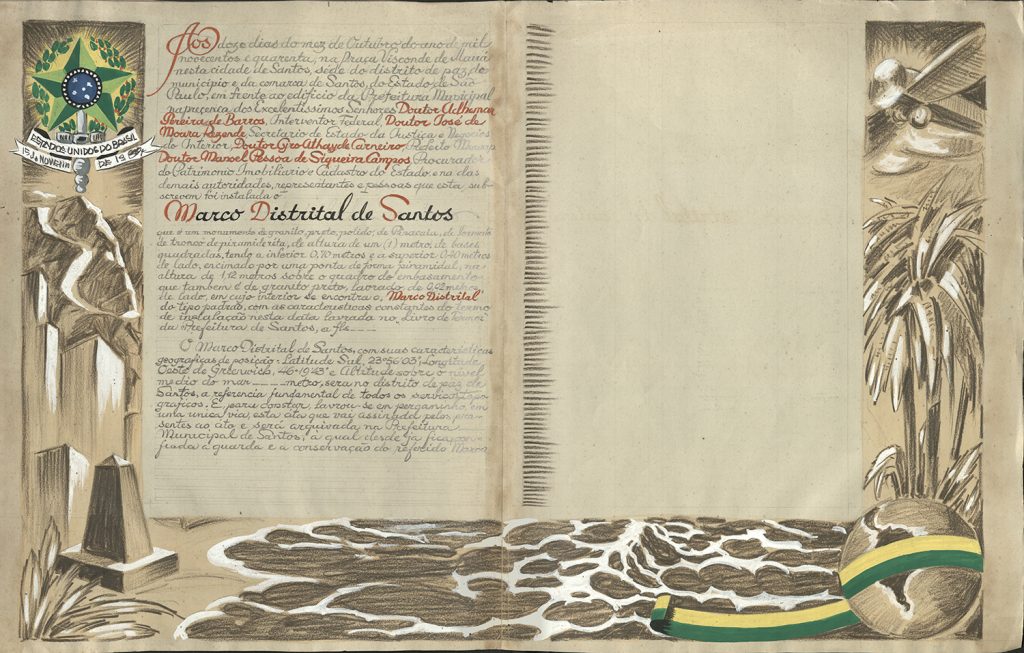 ESTADOS UNIDOS DO BRASIL
15 de Novembro DE 1889
Aos doze dias do mez de Outubro do ano de mil
novecentos e quarenta, na Praça Visconde de Mauá
nesta cidade de Santos, séde do distrito de paz, do
municipio e da comarca de Santos, do Estado de São
Paulo, em frente ao edificio da Prefeitura Municipal
na presença dos Excelentissimos Senhores Doutor Adhemar
Pereira de Barros, Interventor Federal, Doutor José de
Moura Rezende Secretario de Estado da Justiça e Negocios
do Interior, Doutor Cyro Athayde Carneiro, Prefeito Municip.
Doutor Manoel Pessoa de Siqueira Campos Procurador
do Patrimonio Imobiliario e Cadastro do Estado e na das
demais autoridades, representantes e pessoas que esta sub-
screvem foi instalado o
Marco Distrital de Santos
que é um monumento de granito, preto, polido, de Piracaia, de formato
de tronco de piramide rita, de altura de um (1) metro, de bases
quadradas, tendo a inferior 0,70 metros e a superior 0,40 metros
de lado, encimado por uma ponta de forma piramidal, na
altura de 1,12 metros sobre o quadro do embasamento
que tambem é de granito preto, lavorado, de 0,92 metros
de lado, em cujo interior se encontra o, "Marco Distrital"
do tipo padrão, com as caracteristicas constantes do termo
de instalação nesta data lavrada no "Livro de Termos"
da Prefeitura de Santos, a fls ----
O Marco Distrital de Santos, com suas caracteristicas
geograficas de posição: Latitude Sul, 23°56'03", Longitude
Oeste de Greenwich, 46°19'43" e Altitude sobre o nivel
medio do mar ---- metro, sera no distrito de paz de
Santos, a referencia fundamental de todos os serviços topo-
graficos. E, para constar, lavrou-se em pergaminho, em
uma unica via, esta ata que vai assinada pelos pre-
sentes ao ato e será arquivada na Prefeitura
Municipal de Santos, a qual desde já fica con-
fiada á guarda e a conservação do referido Marco